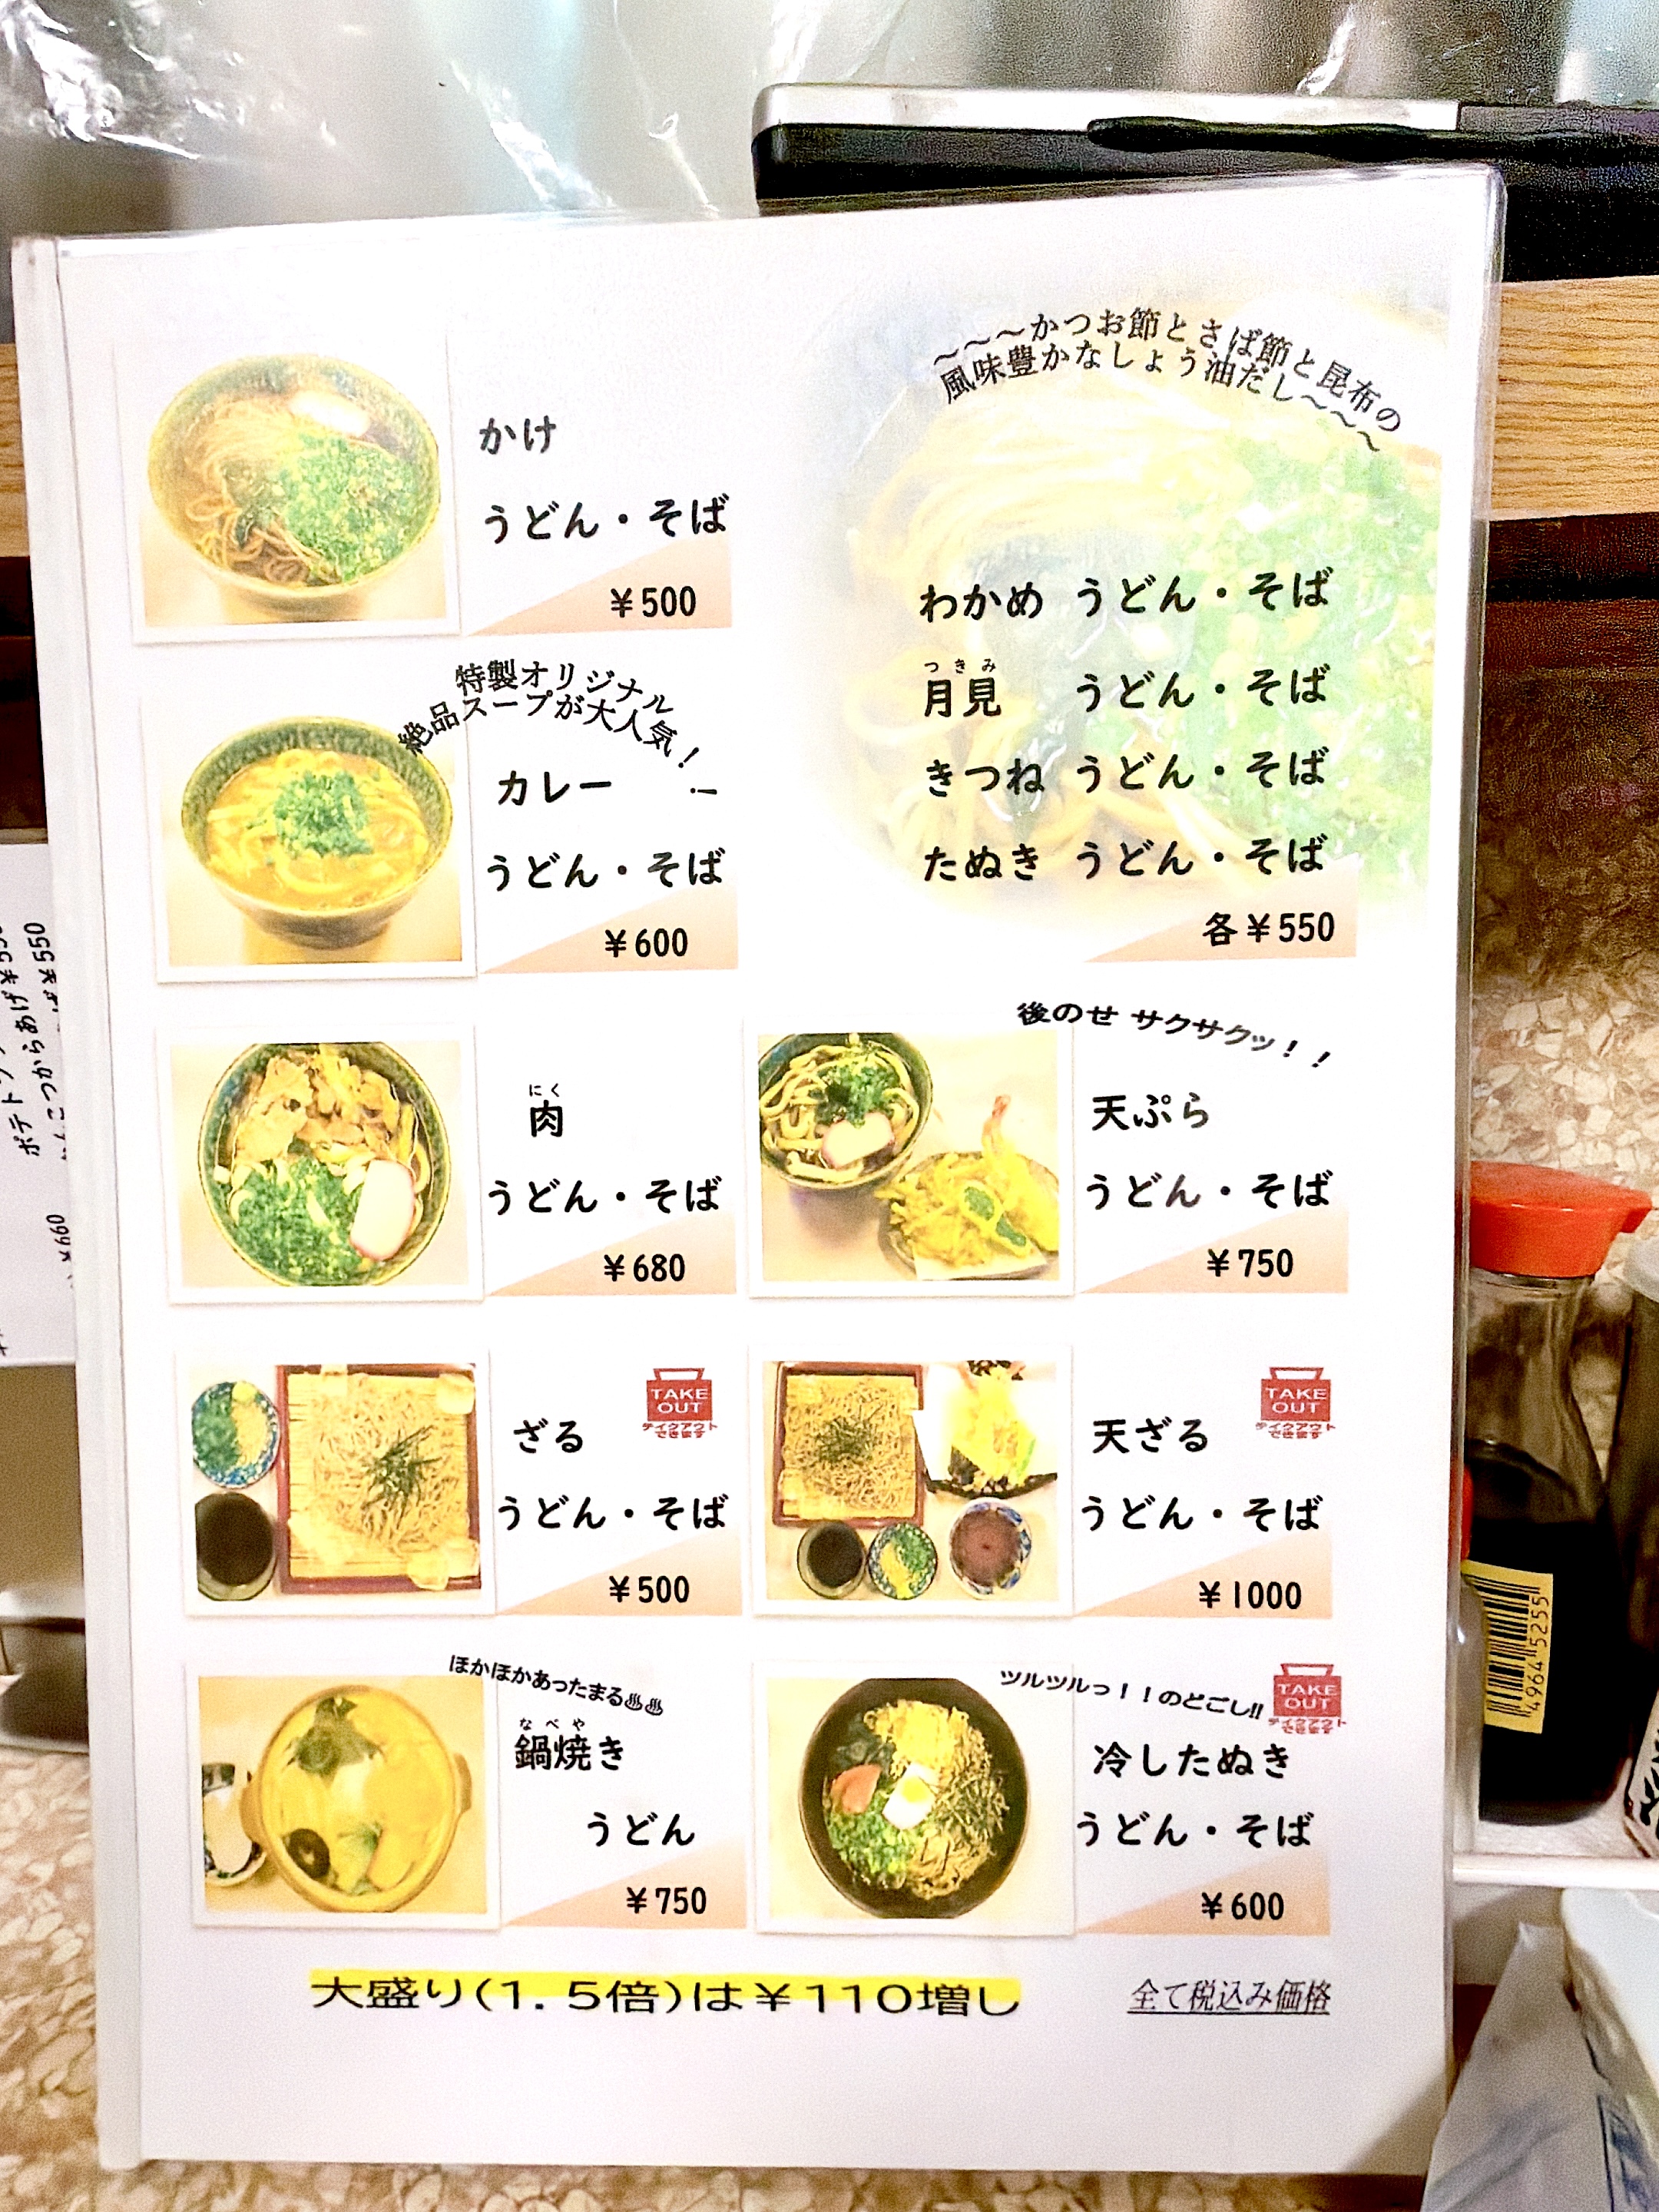 かけ
うどん・そば
¥500
～～～かつお節とさば節と昆布の
風味豊かなしょう油だし～～～
わかめ うどん・そば
つきみ
月見 うどん・そば
きつね うどん・そば
たぬき うどん・そば
各¥550
特製オリジナル
絶品スープが大人気！！
カレー
うどん・そば
¥600
にく
肉
うどん・そば
¥680
後のせ サクサクッ！！
天ぷら
うどん・そば
¥750
TAKE
OUT
テイクアウト
できます
ざる
うどん・そば
¥500
TAKE
OUT
テイクアウト
できます
天ざる
うどん・そば
¥1000
ほかほかあったまる♨♨
なべや
鍋焼き
うどん
¥750
ツルツルっ！！のどごし!!
TAKE
OUT
テイクアウト
できます
冷したぬき
うどん・そば
¥600
大盛り(1.5倍)は¥110増し
全て税込み価格
¥550
からあげ
4964 5255